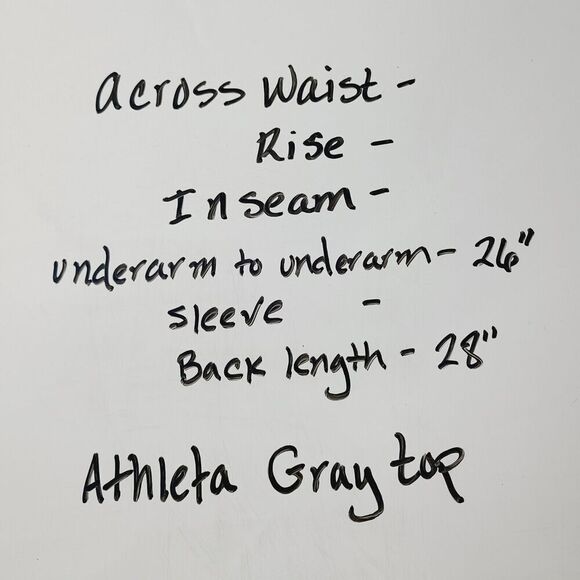 Across Waist -
Rise -
Inseam -
underarm to underarm - 26"
sleeve -
Back length - 28"
Athleta Gray top